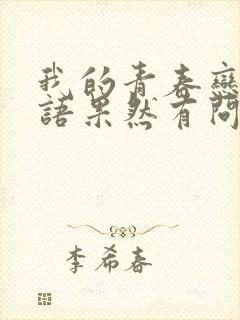 我的青春戀
語果然有問
李希春